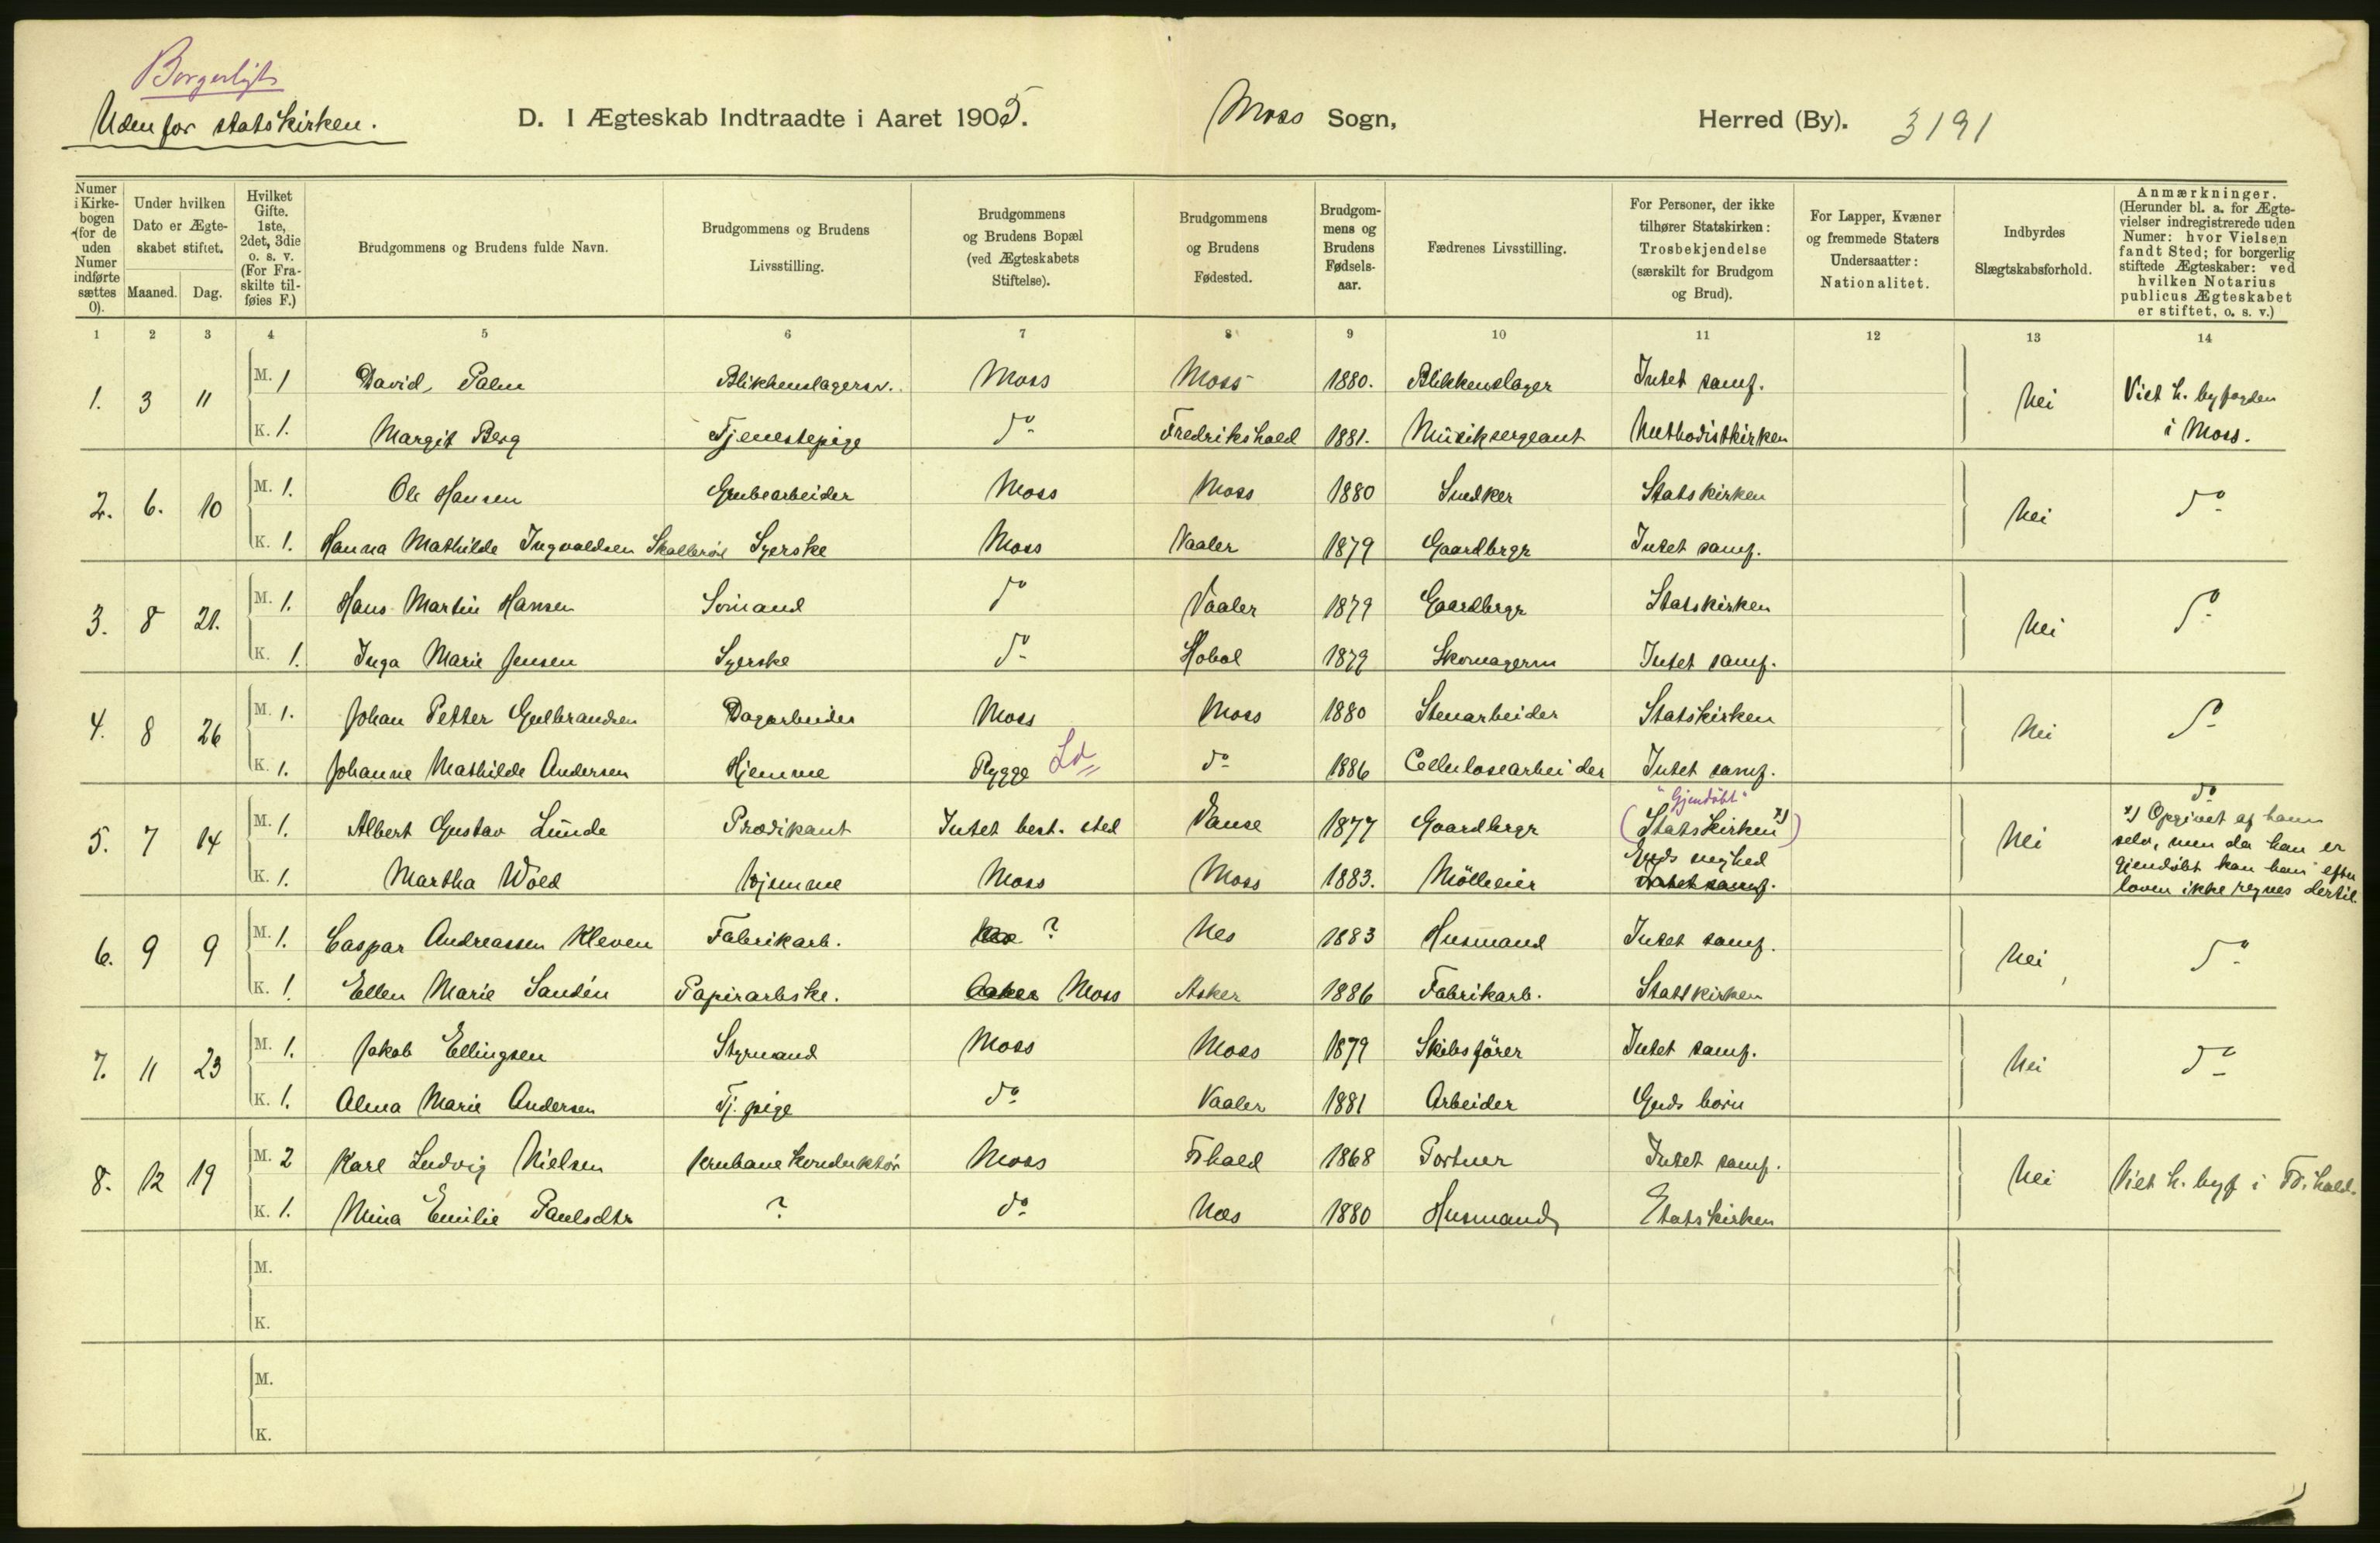 Borgerligt
Udenfor statskirken.
D. I Ægteskab Indtraadte i Aaret 1905. Moss Sogn, Herred (By). 3191
Numer i Kirkebogen (for de uden Numer indførte sættes 0).
Under hvilken Dato er Ægteskabet stiftet.
Maaned. Dag.
Hvilket Gifte. 1ste, 2det, 3die o. s. v. (For Fraskilte tilføies F.)
Brudgommens og Brudens fulde Navn.
Brudgommens og Brudens Livsstilling.
Brudgommens og Brudens Bopæl (ved Ægteskabets Stiftelse).
Brudgommens og Brudens Fødested.
Brudgommens og Brudens Fødselsaar.
Fædrenes Livsstilling.
For Personer, der ikke tilhører Statskirken: Trosbekjendelse (særskilt for Brudgom og Brud).
For Lapper, Kvæner og fremmede Staters Undersaatter: Nationalitet.
Indbyrdes Slægtskabsforhold.
Anmærkninger. (Herunder bl. a. for Ægtevielser indregistrerede uden Numer: hvor Vielsen fandt Sted; for borgerlig stiftede Ægteskaber: ved hvilken Notarius publicus Ægteskabet er stiftet, o. s. v.)
1 2 3 4 5 6 7 8 9 10 11 12 13 14
1. 3 11 M. 1 David Palm Blikkenslagersv. Moss Moss 1880. Blikkenslager Intet samf. Nei Viet h. byfogden i Moss.
K. 1. Margit Berg Tjenestepige do Fredrikshald 1881. Musiksergeant Methodistkirken
2. 6. 10 M. 1. Ole Hansen Grubearbeider Moss Moss 1880 Snedker Statskirken Nei do
K. 1. Hanna Mathilde Ingvaldsen Skallerød Syerske Moss Vaaler 1879 Gaardbrgr Intet samf.
3. 8 21. M. 1. Hans Martin Hansen Sømand do Vaaler 1879 Gaardbrgr Statskirken Nei do
K. 1. Inga Marie Jensen Syerske do Hobøl 1879 Skomagerm Intet samf.
4. 8 26 M. 1. Johan Petter Gulbrandsen Dagarbeider Moss Moss 1880 Stenarbeider Statskirken Nei do
K. 1. Johanne Mathilde Andersen Hjemme Rygge Ld do 1886 Cellulosearbeider Intet samf.
5. 7 14 M. 1. Albert Gustav Lunde Prædikant Intet best. sted Vanse 1877 Gaardbrgr "Gjendøbt" (Statskirken x)) Nei do
x) Opgivet af ham selv, men da han er gjendøbt kan han efter loven ikke regnes dertil
K. 1. Martha Wold Hjemme Moss Moss 1883. Mølleeier Guds meghed Intet samf.
6. 9 9 M. 1. Caspar Andreassen Kleven Fabrikarb. ? Nes 1883 Husmand Intet samf. Nei do
K. 1. Ellen Marie Sandén Papirarbske. Asker Moss Asker 1886 Fabrikarb. Statskirken
7. 11 23 M. 1. Jakob Ellingsen Styrmand Moss Moss 1879 Skibsfører Intet samf. Nei do
K. 1. Alma Marie Andersen Tj. pige do Vaaler 1881 Arbeider Guds børn
8. 12 19 M. 2 Karl Ludvig Nielsen Jernbanekonduktør Moss Fhald 1868 Portner Intet samf. Nei Viet h. byf i Fr.hald.
K. 1. Mina Emilie Paulsdtr ? do Næs 1880 Husmand Statskirken
M.
K.
M.
K.